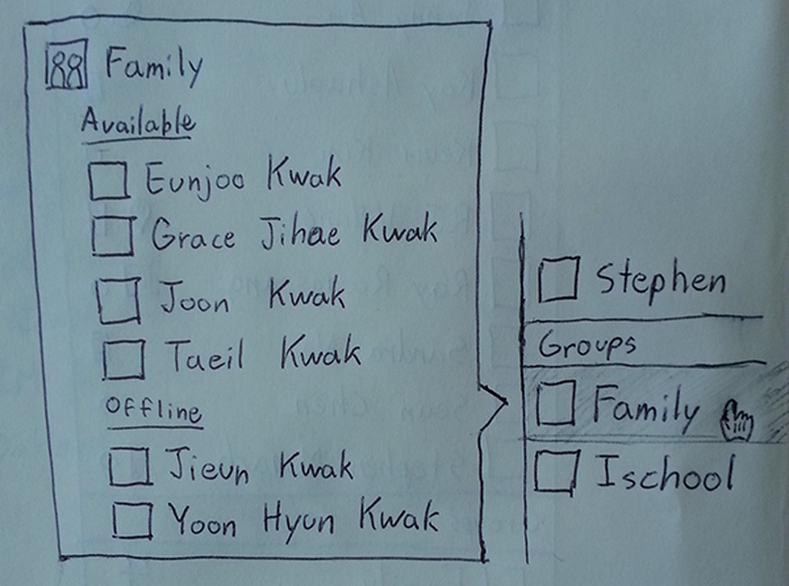 Family
Available
Eunjoo Kwak
Grace Jihae Kwak
Joon Kwak
Taeil Kwak
Offline
Jieun Kwak
Yoon Hyun Kwak
Stephen
Groups
Family
Ischool